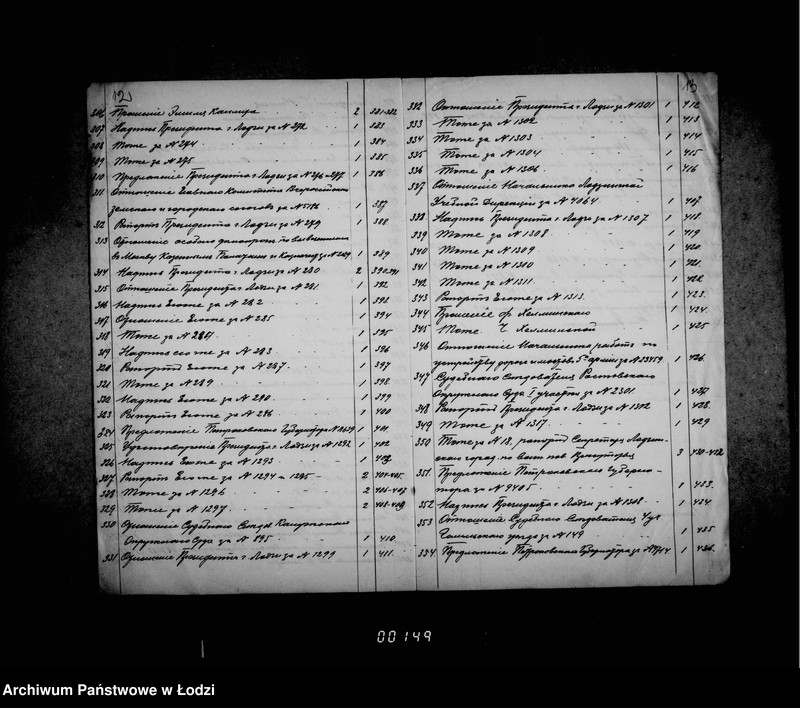 12
306 Прошеніе Эмиля 2 381-382
307 Надпись Президента г. Лодзи за № 272 1 383
308 Тоже за № 274 1 384
309 Тоже за № 275 1 385
310 Предложеніе Президента г. Лодзи за № 276-277 1 386
311 Отношеніе Главнаго Комитета Всероссійскаго
земскаго и городского союзовъ за № 5186 1 387
312 Рапортъ Президента г. Лодзи за № 279 1 388
313 Отношеніе особаго по
въ Москву Казенныхъ Палатъ и Казначействъ за № 1 389
314 Надпись Президента г. Лодзи за № 280 2 390-391
315 Отношеніе Президента г. Лодзи за № 281 1 392
316 Надпись Егоже за № 282 1 392
317 Отношеніе Егоже за № 285 1 394
318 Тоже за № 1 395
319 Надпись его же за № 283 1 396
320 Рапортъ Егоже за № 287 1 397
321 Тоже за № 289 1 398
322 Надпись Егоже за № 290 1 399
323 Рапортъ Егоже за № 296 1 400
324 Предложеніе Петроковскаго Губернатора № 2639 1 401
325 Удостовѣреніе Президента г. Лодзи за № 1292 1 402
326 Надпись Егоже за № 1293 1 403
327 Рапортъ Егоже за № 1294 и 1295 2 404-405
328 Тоже за № 1296 2 406-407
329 Тоже за № 1297 2 408-409
330 Отношеніе Судебнаго Слѣдов.
Окружнаго Суда за № 895 1 410
331 Отношеніе Президента г. Лодзи за № 1299 1 411
13
332 Отношеніе Президента г. Лодзи за № 1301 1 412
333 Тоже за № 1302 1 413
334 Тоже за № 1303 1 414
335 Тоже за № 1304 1 415
336 Тоже за № 1306 1 416
337 Отношеніе Начальника Лодзинской
Учебной Дирекціи за № 4064 1 417
338 Надпись Президента г. Лодзи за № 1307 1 418
339 Тоже за № 1308 1 419
340 Тоже за № 1309 1 420
341 Тоже за № 1310 1 421
342 Тоже за № 1311 1 422
343 Рапортъ Егоже за № 1313 1 423
344 Прошеніе Ф. Хелминскаго 1 424
345 Тоже Ч. Хелминской 1 425
346 Отношеніе Начальника работъ по
устройству дорогъ и мостовъ 5й арміи за № 33459 1 426
347 Судебнаго Слѣдователя Ростовскаго
Окружнаго Суда 1 участка за № 2301 1 427
348 Рапортъ Президента г. Лодзи за № 1312 1 428
349 Тоже за № 1317 1 429
350 Тоже за № 13, рапортъ Секретаря Лодзин-
скаго город. по воин. пов. 3 430-432
351 Предложеніе Петроковскаго Губерна-
тора за № 9405 1 433
352 Надпись Президента г. Лодзи за № 1308 1 434
353 Отношеніе Судебнаго Слѣдователя
уѣзда за № 149 1 435
354 Предложеніе Петроковскаго Губернатора за № 1 436
00149
Archiwum Państwowe w Łodzi